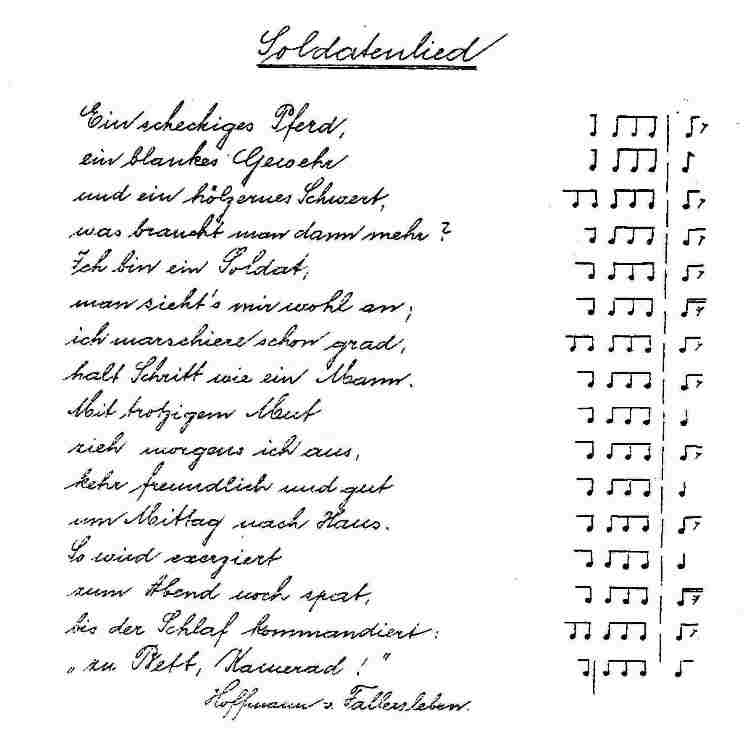 Soldatenlied
Ein scheckiges Pferd,
ein blankes Gewehr
und ein hölzernes Schwert,
was braucht man dann mehr?
Ich bin ein Soldat,
man sieht's mir wohl an;
ich marschiere schon grad,
halt Schritt wie ein Mann.
Mit trotzigem Mut
zieh morgens ich aus,
kehr freundlich und gut
um Mittag nach Haus.
So wird exerziert
zum Abend noch spat,
bis der Schlaf kommandiert:
„zu Bett, Kamerad!"
Hoffmann v. Fallersleben.